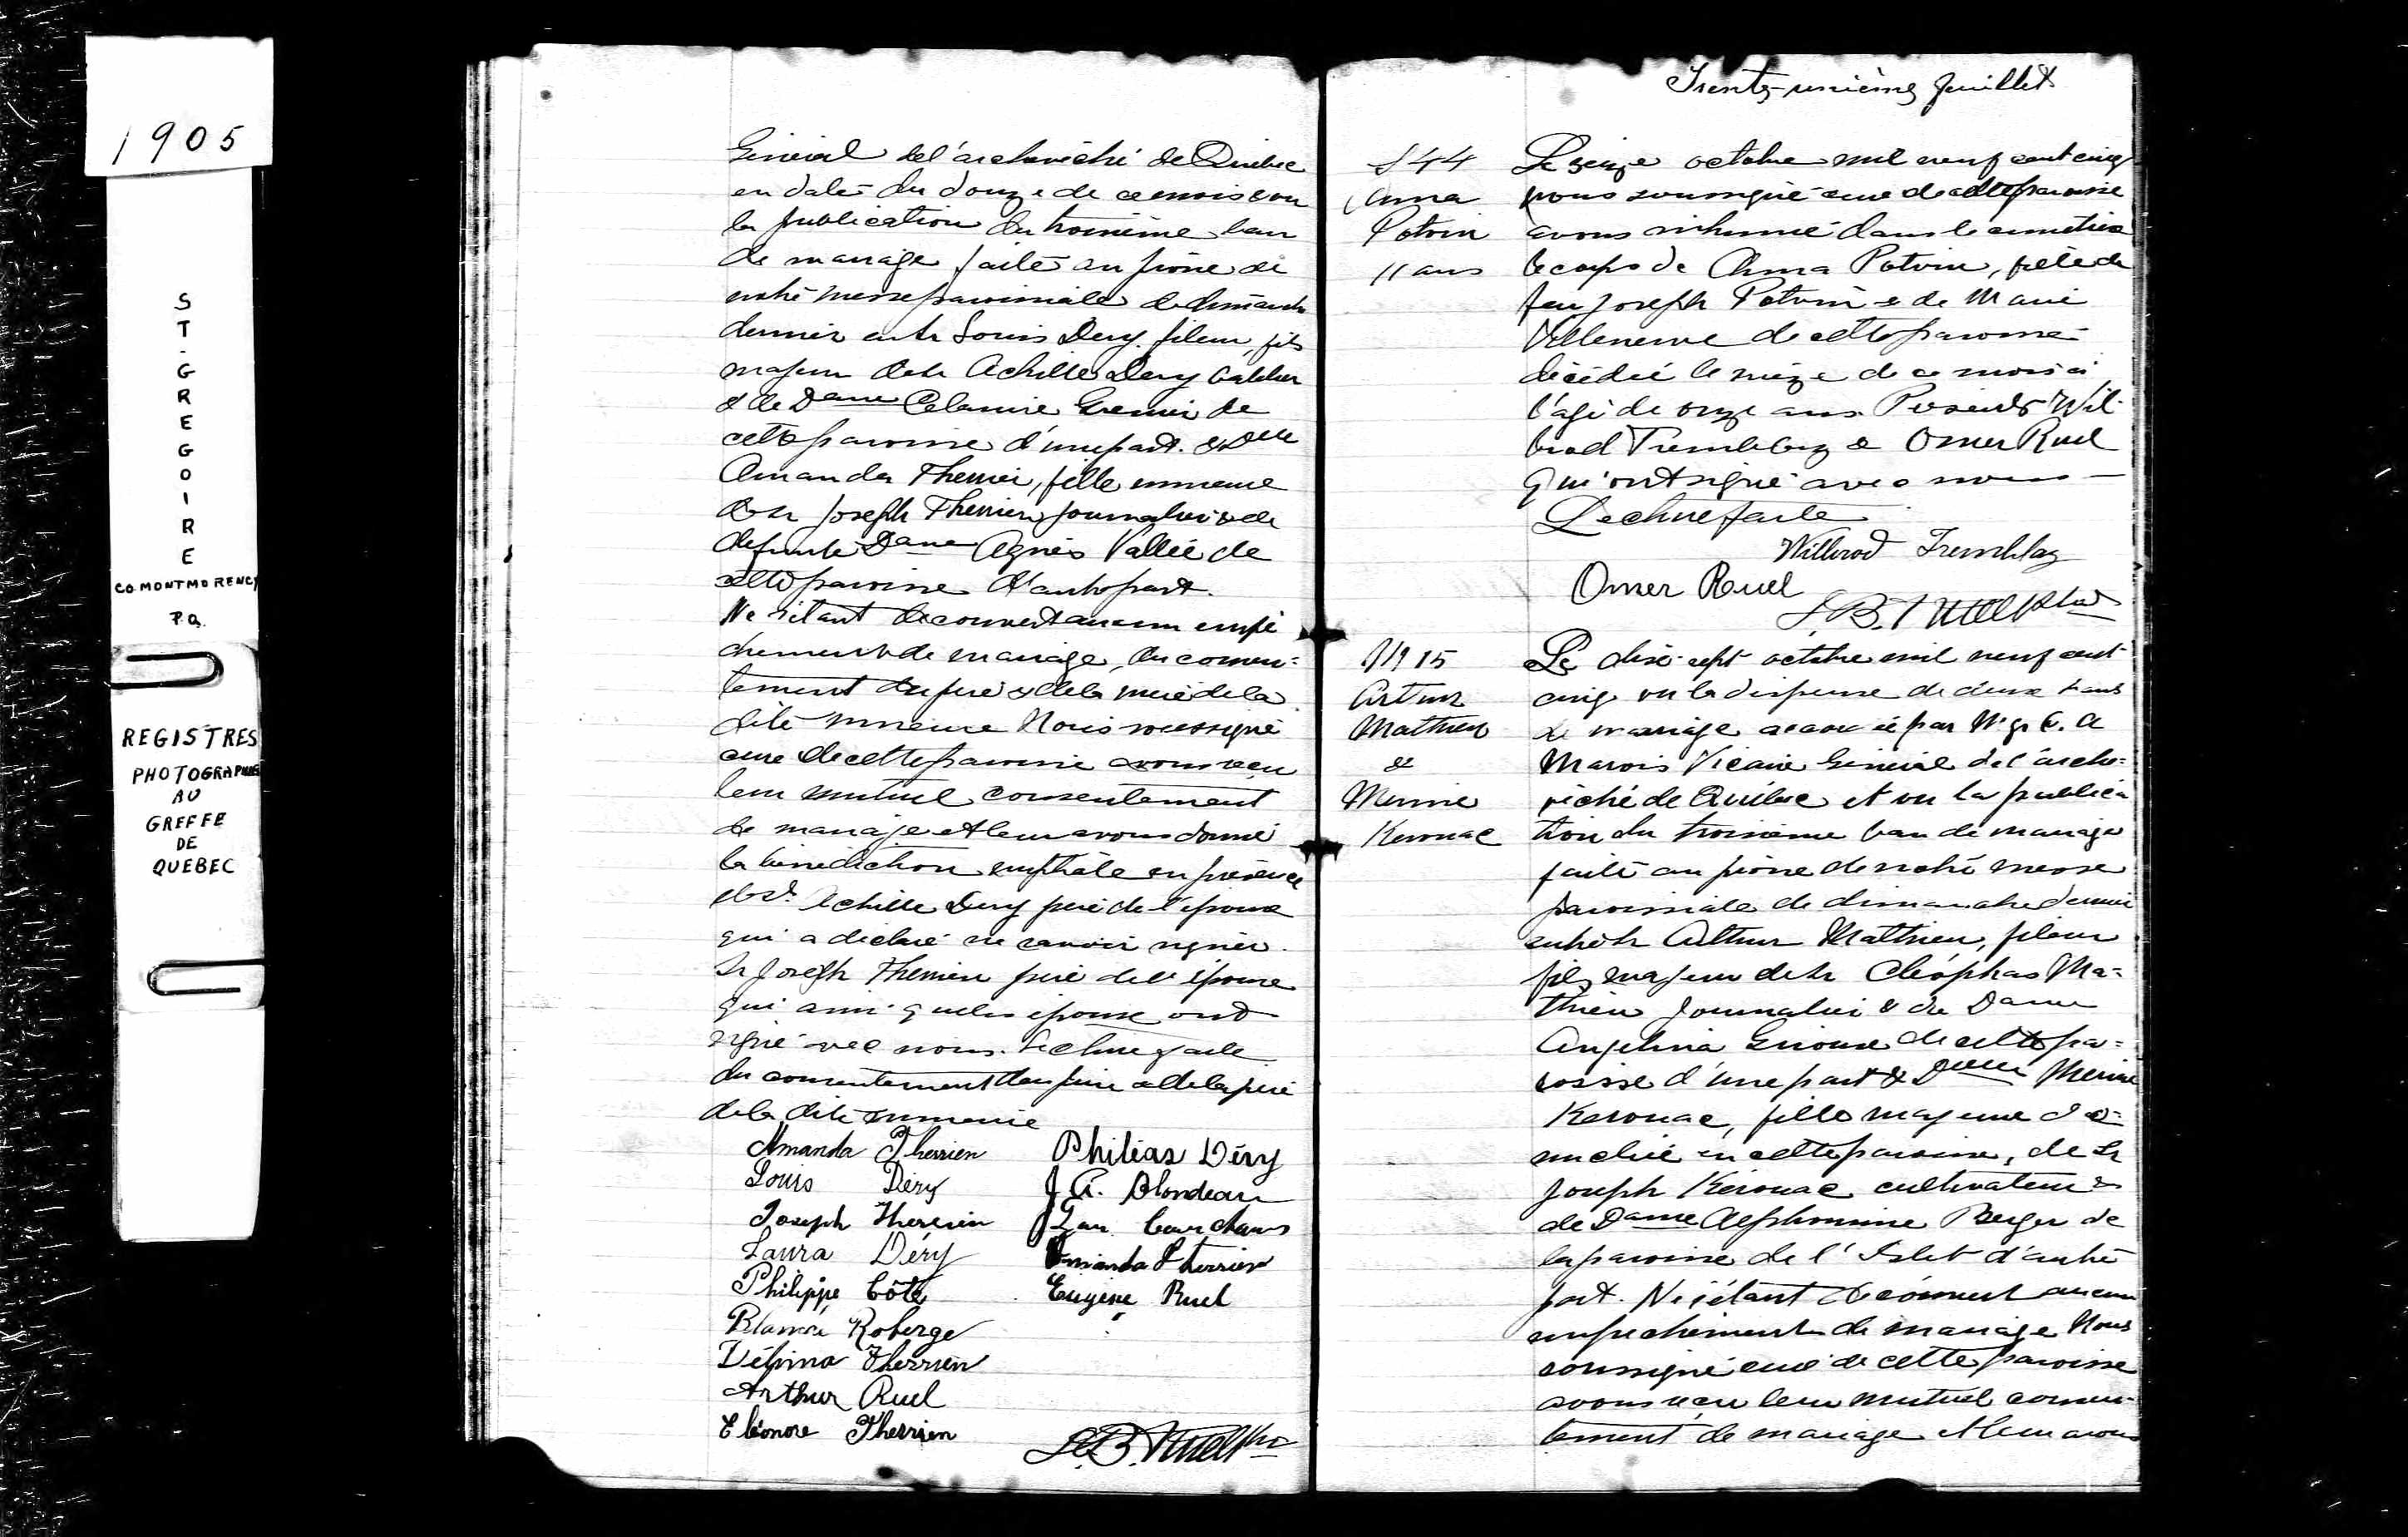 1905
ST. GREGOIRE
CO. MONTMORENCY
P.Q.
REGISTRES
PHOTOGRAPHIES
AU
GREFFE
DE
QUEBEC
Général de l'archevêché de Québec
en date du douze de ce mois & vu
la publication du troisième ban
de mariage faite au prône de
notre messe paroissiale de dimanche
dernier entre Louis Dery fileur, fils
majeur de Sr Achille Dery
& de Dame Celanire Grenier de
cette paroisse d'une part. & Delle
Amanda Therrien, fille mineure
de Sr Joseph Therrien journalier & de
defunte Dame Agnès Vallée de
cette paroisse d'autre part.
Ne s'étant découvert aucun empê
chement de mariage, du consen=
tement du père & de la mère de la
dite mineure Nous soussigné
curé de cette paroisse avons reçu
leur mutuel consentement
de mariage et leur avons donné
la bénédiction nuptiale en présence
de Sr Achille Dery père de l'époux
qui a déclaré ne savoir signer.
Sr Joseph Therrien père de l'épouse
qui ainsi que les époux ont
signé avec nous. Lecture faite
du consentement du père & de la
de la dite mineure
Amanda Therrien Philéas Déry
Louis Déry J. A. Blondeau
Joseph Therrien
Laura Déry Amanda Therrien
Philippe Côté Eugène Ruel
Blanche Roberge
Délvina Therrien
Arthur Ruel
Eléonore Therrien
Trente-unième feuillet
S 44
Anna
Potvin
11 ans
Le seize octobre mil neuf cent cinq
nous soussigné curé de cette paroisse
avons inhumé dans le cimetière
le corps de Anna Potvin, fille de
feu Joseph Potvin & de Marie
Villeneuve de cette paroisse
décédée le de ce mois à
l'âge de onze ans. Présents Wil-
brod Tremblay & Omer Ruel
qui ont signé avec nous —
Lecture faite
Wilbrod Tremblay
Omer Ruel
M 15
Arthur
Mathieu
&
Minnie
Kerouac
Le dix-sept octobre mil neuf cent
cinq vu la dispense de deux bans
de mariage accordée par Mgr C. A
Marois Vicaire Général de l'arche=
vêché de Québec et vu la publica
tion du troisième ban de mariage
faite au prône de notre messe
paroissiale de dimanche dernier
entre Sr Arthur Mathieu, fileur
fils majeur de Sr Cléophas Ma=
thieu Journalier & de Dame
Angelina Giroux de cette pa=
roisse d'une part & Delle Minnie
Kerouac, fille majeure do=
miciliée en cette paroisse, de Sr
Joseph Kérouac cultivateur &
de Dame Alphonsine Berger de
la paroisse de l'Islet d'autre
part. Ne s'étant découvert aucun
empêchement de mariage Nous
soussigné curé de cette paroisse
avons reçu leur mutuel consen-
tement de mariage et leur avons